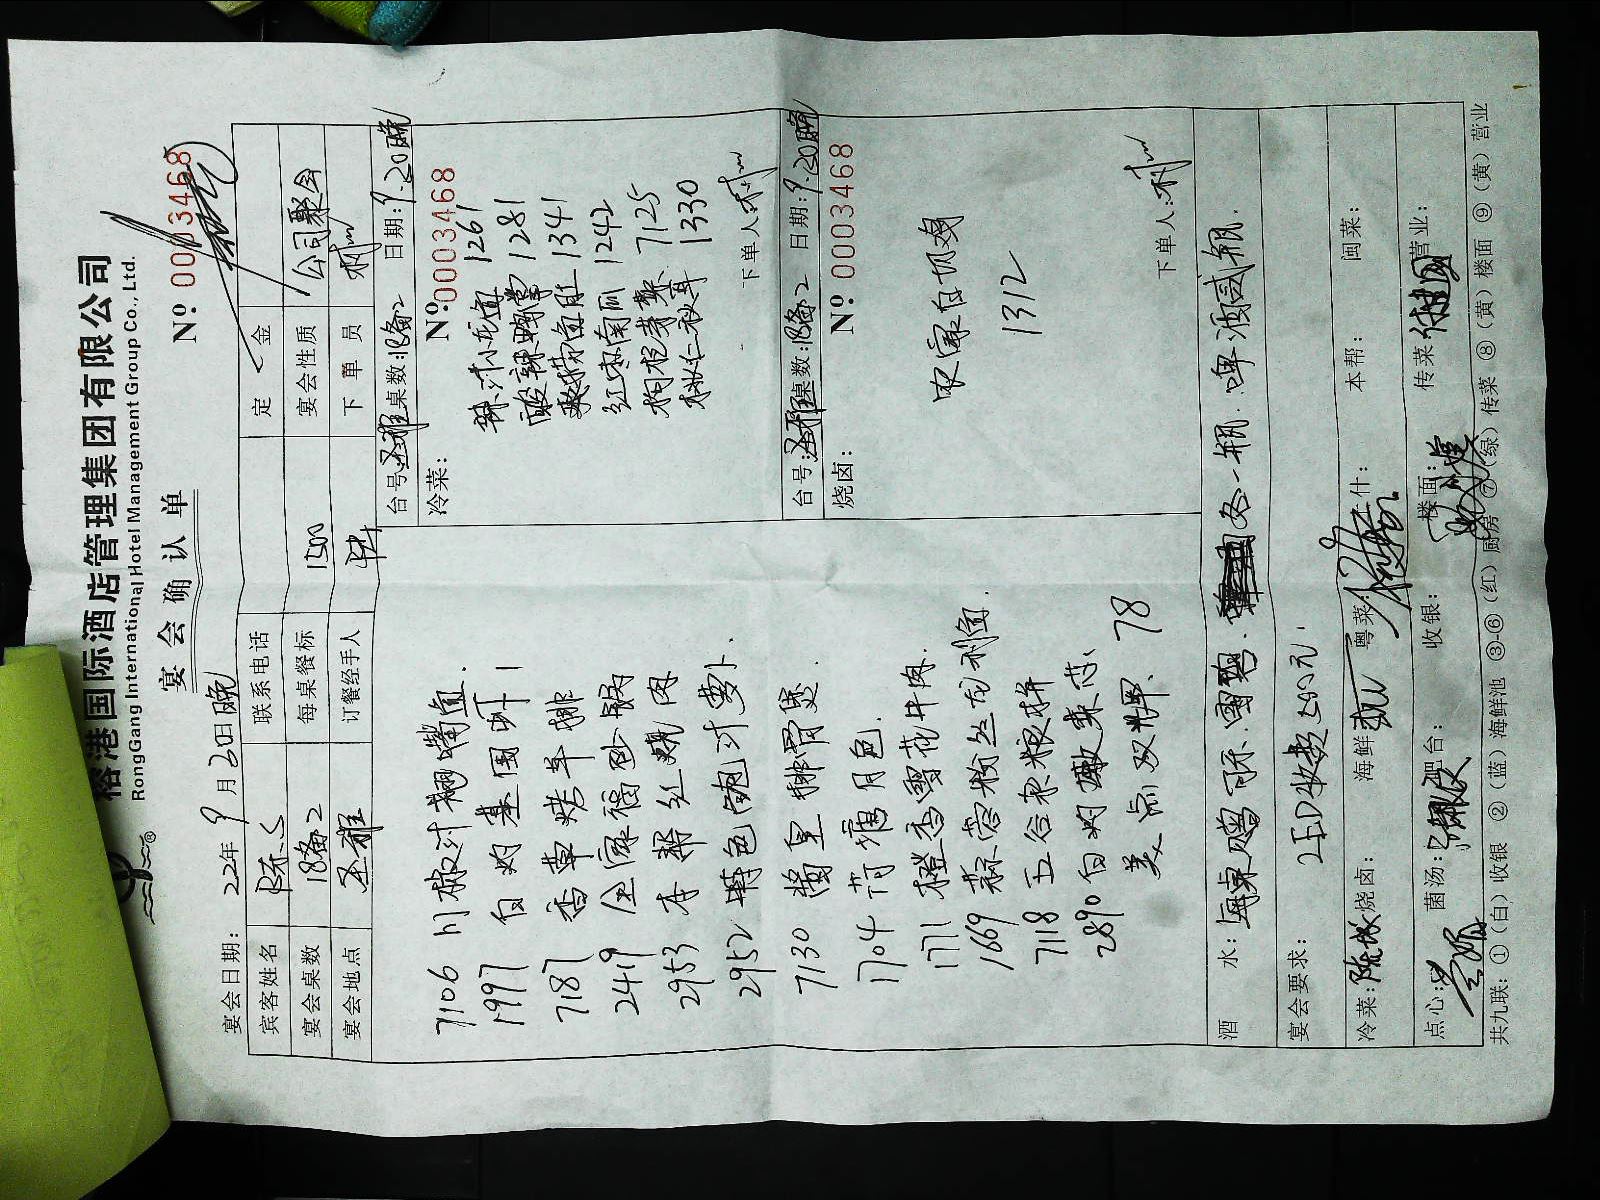 榕港国际酒店管理集团有限公司
RongGang International Hotel Management Group Co., Ltd.
宴会确认单
Nº 0003468
宴会日期: 22年9月20日晚
宾客姓名 陈S 联系电话 定金
宴会桌数 18备2 每桌餐标 1500 宴会性质 公司聚会
宴会地点 圣雅 订餐经手人 下单员
7106 川椒汁翘嘴鱼.
1997 白灼基围虾
7187 香草烤羊排
2419 全家福砂锅
2953 本帮红烧肉
2952 特色鲍汁萝卜.
7130 酱皇排骨煲.
1704 荷塘月色.
1771 橙香雪花牛肉.
1669 蒜蓉粉丝龙利鱼.
7118 五谷杂粮拼
2890 白灼嫩菜芯、
美点双辉. 78
台号: 圣雅 桌数: 18备2 日期: 9.20晚
冷菜: Nº 0003468
1261
酸辣 1281
1341
红枣南瓜 1242
枸杞芽 7125
桃仁秋耳 1330
下单人:
台号: 圣雅 桌数: 18备2 日期: 9.20晚
烧卤: Nº 0003468
农家白切鸡
1312
下单人:
酒水: 每桌赠可乐.雪碧.各一瓶.啤酒贰瓶.
宴会要求: 已收 500元.
冷菜: 烧卤: 海鲜: 粤菜: 什: 本帮: 闽菜:
点心: 菌汤: 吧台: 收银: 楼面: 传菜: 营业:
共九联: ①(白)收银 ②(蓝)海鲜池 ③-⑥(红)厨房 ⑦(绿)传菜 ⑧(黄)楼面 ⑨(黄)营业